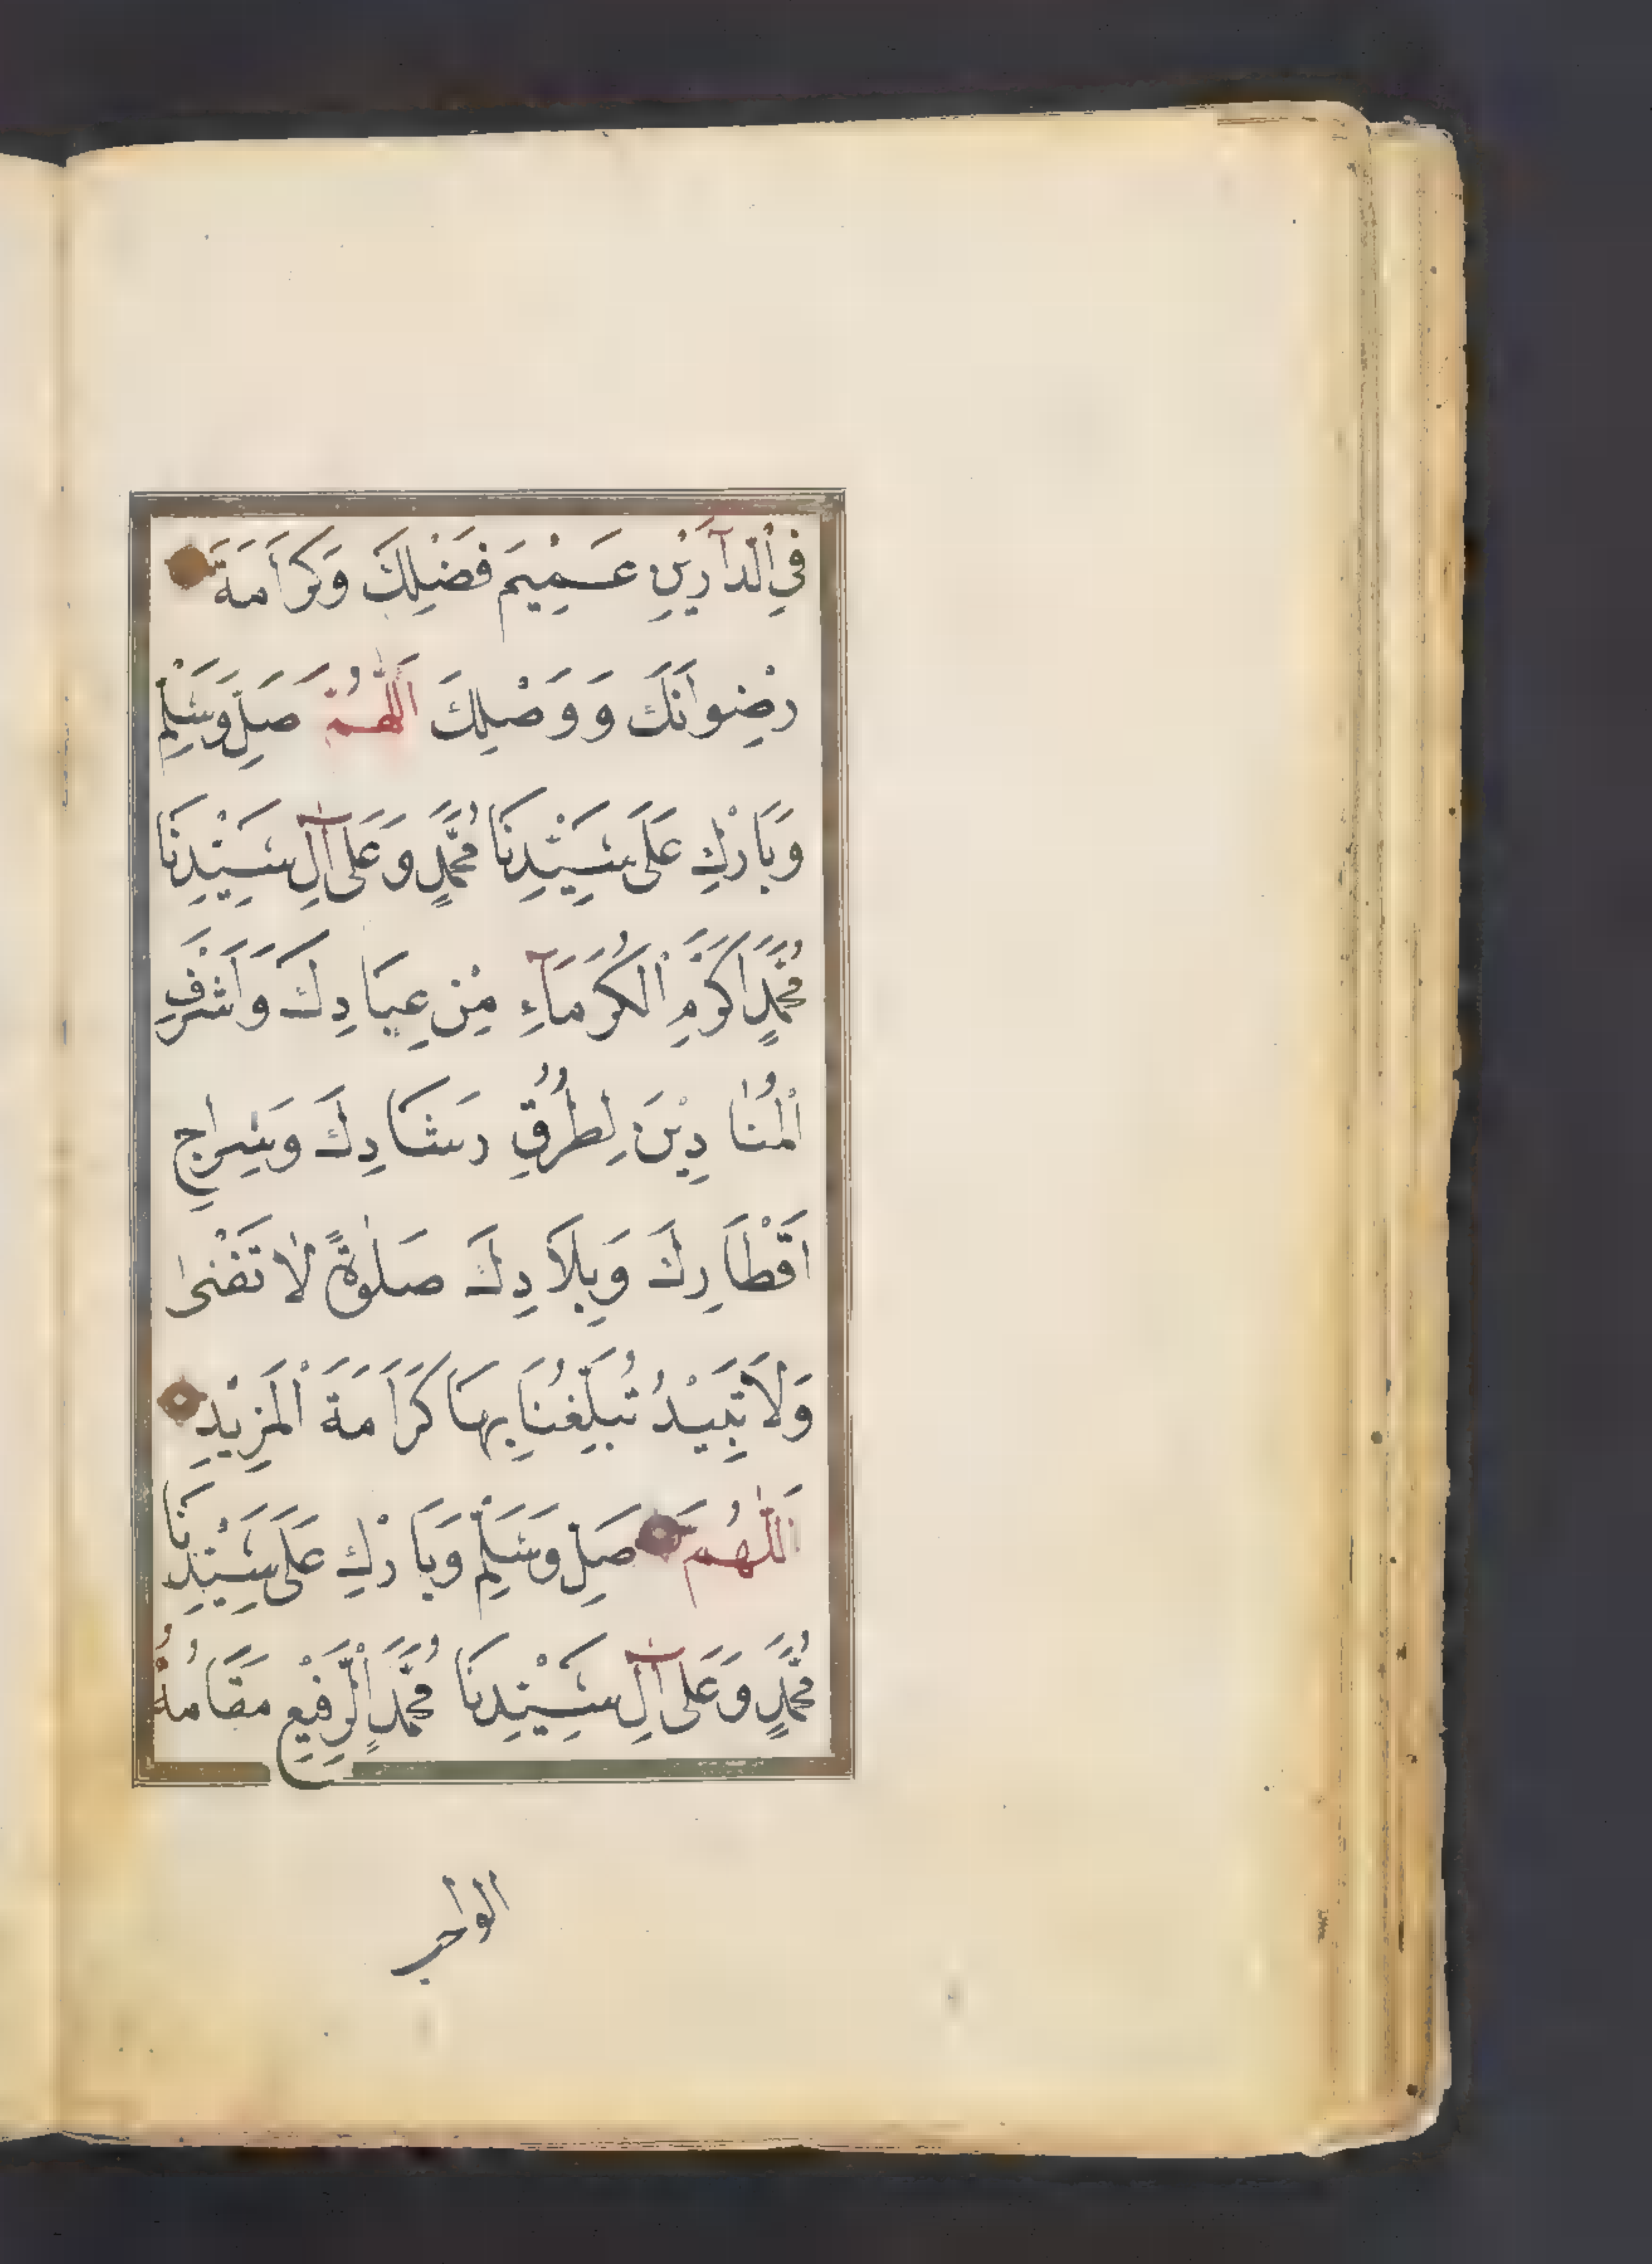 فِي الدَّآرَيْنِ عَمِيْمَ فَضْلِكَ وَكَرَامَةَ
رِضْوَانِكَ وَوَصْلِكَ اَللّٰهُمَّ صَلِّ وَسَلِّمْ
وَبَارِكْ عَلَى سَيِّدِنَا مُحَمَّدٍ وَعَلَى آلِ سَيِّدِنَا
مُحَمَّدٍ اَكْرَمِ الْكُرَمَآءِ مِنْ عِبَادِكَ وَاَشْرَفِ
الْمُنَادِيْنَ لِطُرُقِ رَشَادِكَ وَسِرَاجِ
اَقْطَارِكَ وَبِلَادِكَ صَلٰوةً لَا تَفْنٰى
وَلَا تَبِيْدُ تُبَلِّغُنَا بِهَا كَرَامَةَ الْمَزِيْدِ
اَللّٰهُمَّ صَلِّ وَسَلِّمْ وَبَارِكْ عَلَى سَيِّدِنَا
مُحَمَّدٍ وَعَلَى آلِ سَيِّدِنَا مُحَمَّدٍ الرَّفِيْعِ مَقَامُهُ
الواجب